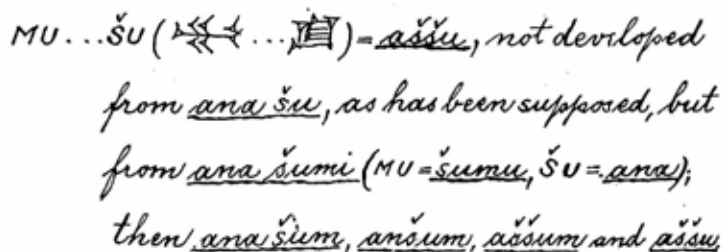 MU...ŠU (𒈬...𒋙) = aššu, not developed
from ana šu, as has been supposed, but
from ana šumi (MU = šumu, ŠU = ana);
then ana šum, anšum, aššum and aššu